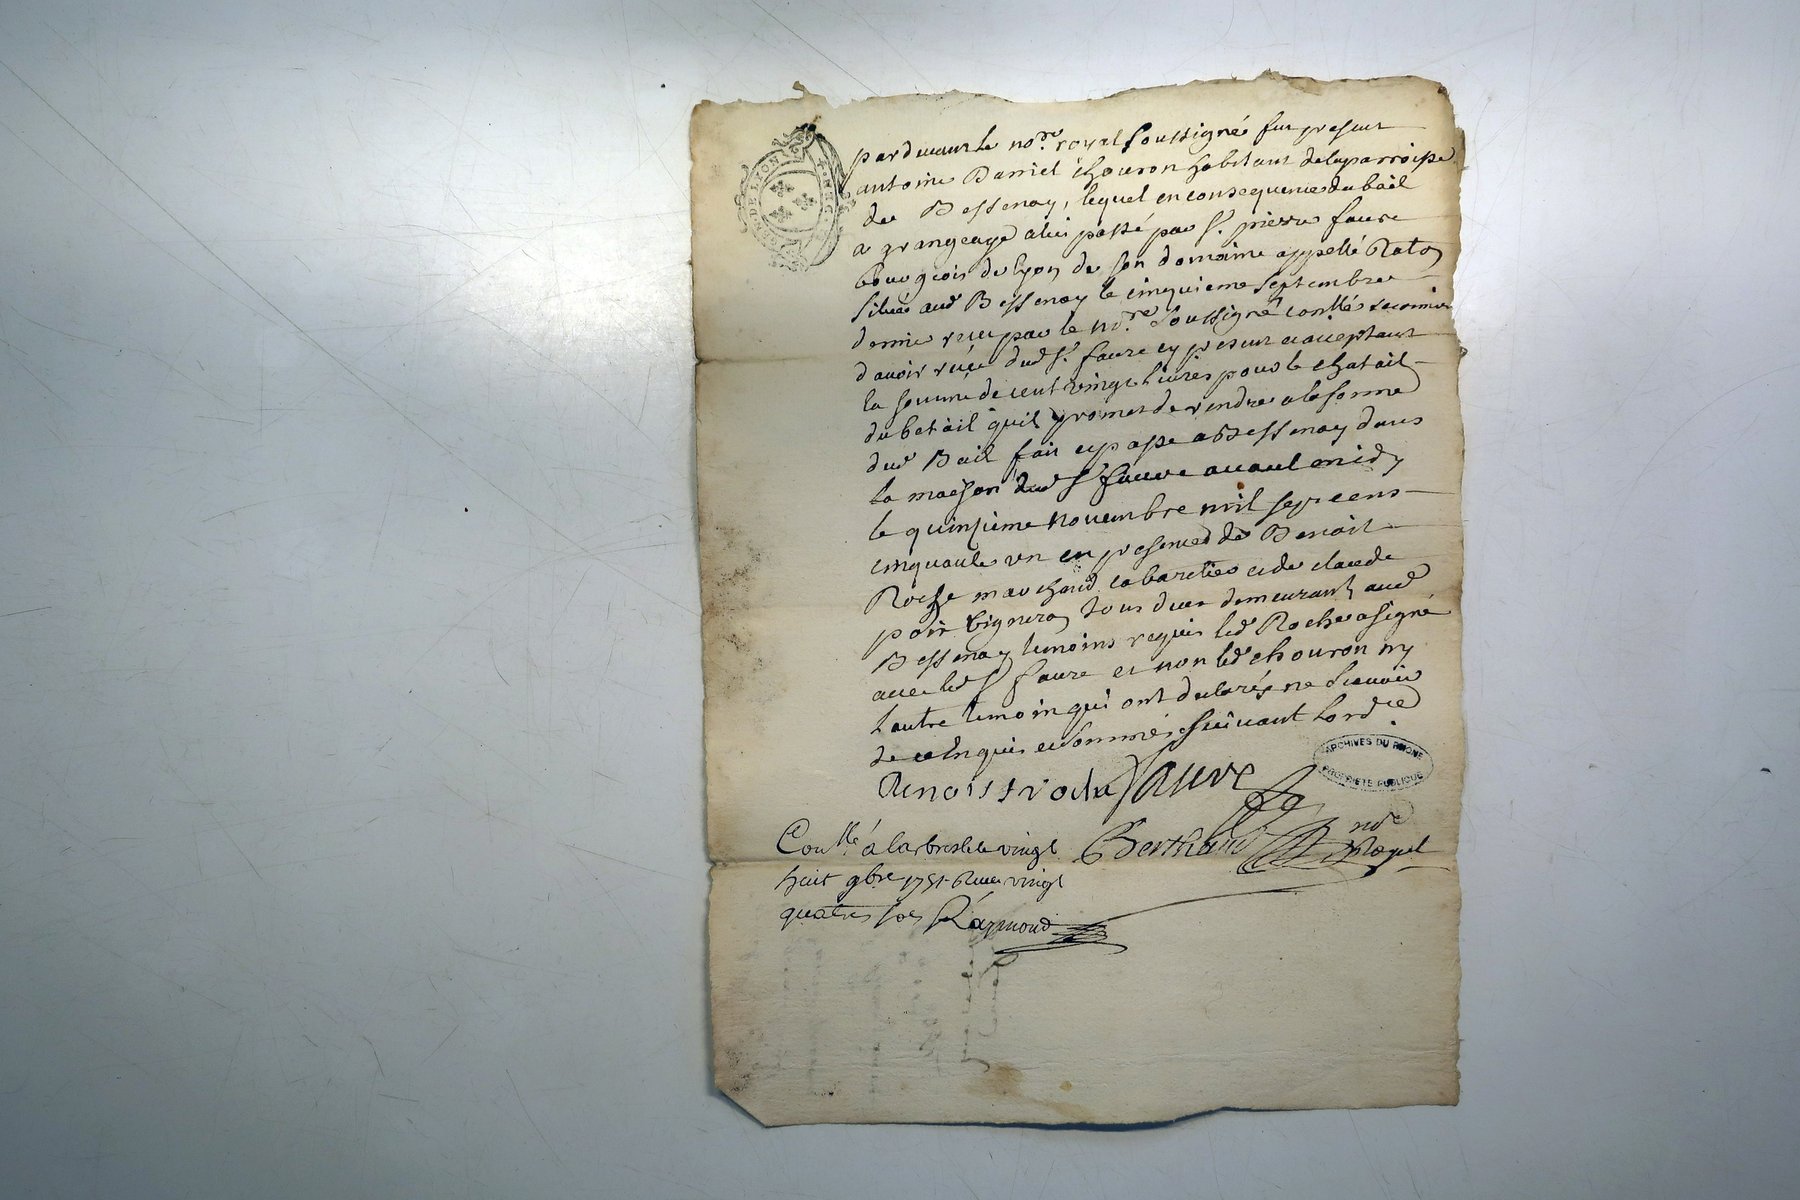 GEN. DE LYON
pardevant le no.re royal soussigné fut present
antoine Daniel chouron habitant de la parroisse
de Bessenay, lequel en consequence du bail
a grangeage a lui passé par Sr. pierre faure
bourgeois de lyon de son domaine appellé Raton
situé aud Bessenay le cinquieme septembre
dernier receu par le no.re soussigné conllé
davoir receu dud Sr. faure cy present et acceptant
la somme de cent vingt livres pour le chatail
du betail quil promet de rendre a la forme
dud Bail fait et passé a Bessenay dans
la maison dud Sr faure avant midy
le quinzieme novembre mil sept cens
cinquante un en presence de Benoit
Roche marchand cabaretier et de claude
poir vigneron tous deux demeurant aud
Bessenay temoins requis led Roche a signé
avec led Sr faure et non led chouron ny
lautre temoin qui ont declarés ne scavoir
de ce enquis et sommés suivant lord.e
Benoist roche faure
ARCHIVES DU RHONE
PROPRIETE PUBLIQUE
Conllé a la bresle le vingt Berthaud no.re Royal
huit 9bre 1751 Receu vingt
quatre sols Raymond